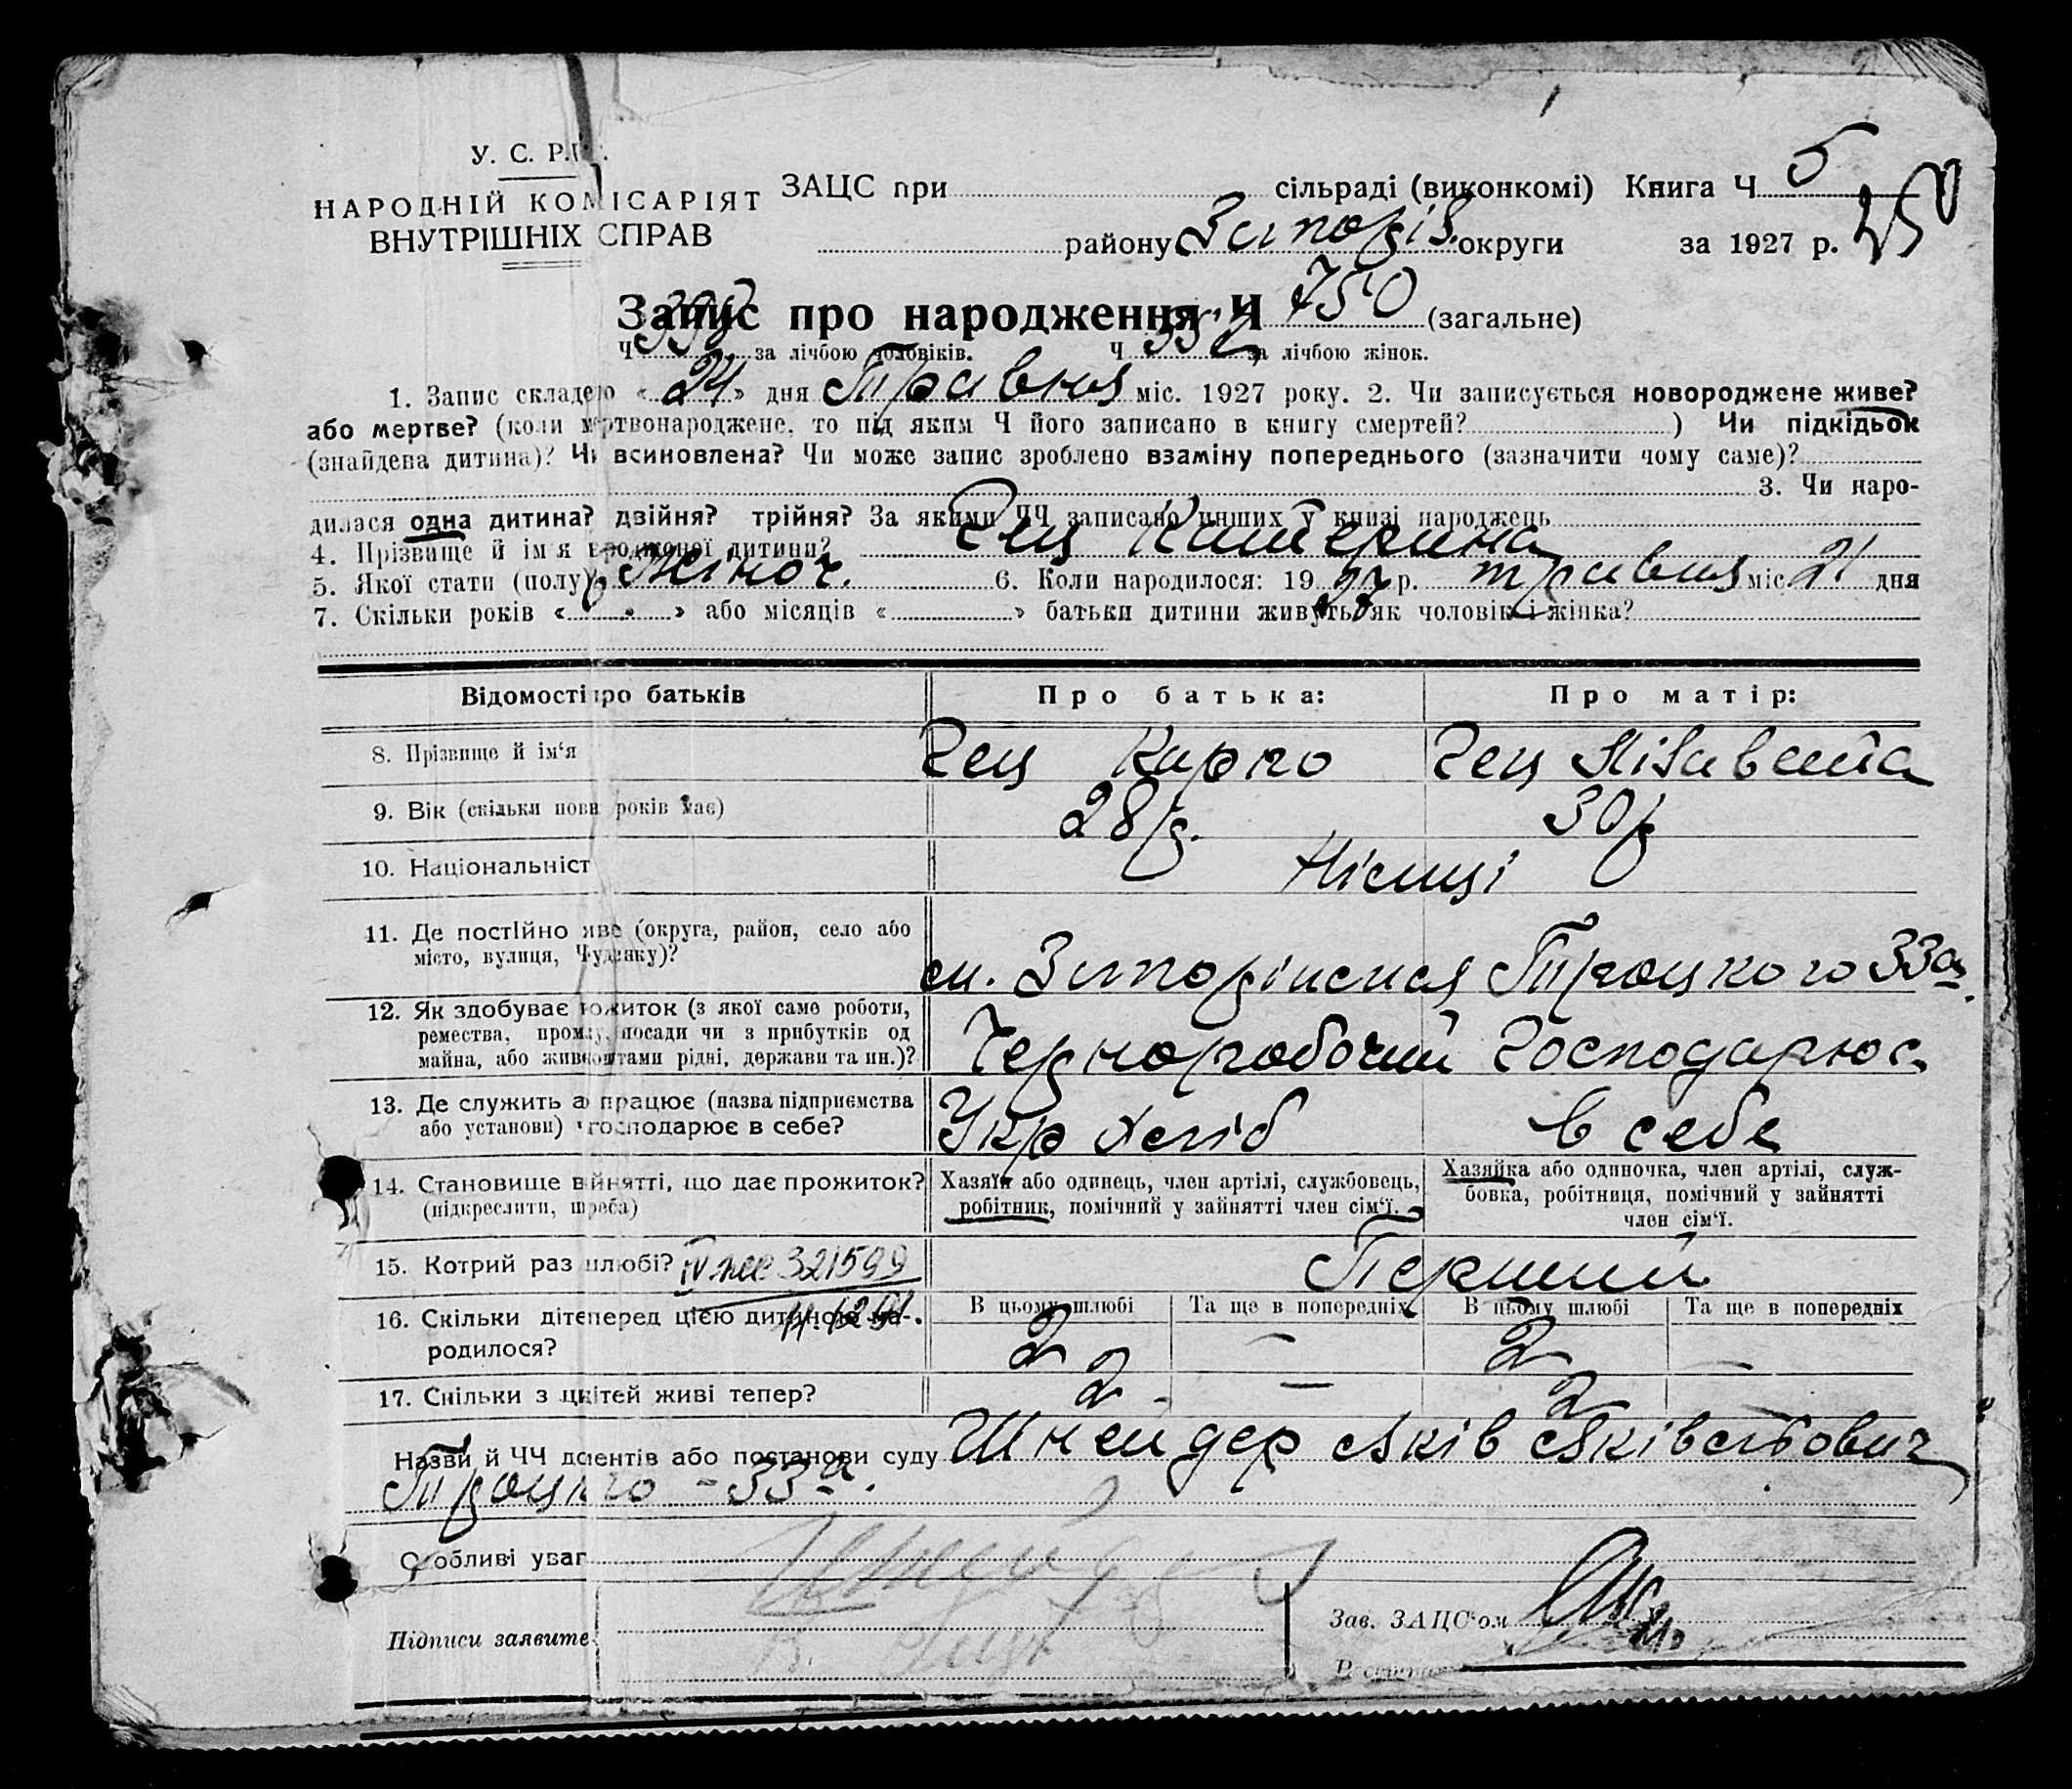 У. С. Р.Р.
НАРОДНІЙ КОМІСАРІЯТ
ВНУТРІШНІХ СПРАВ
ЗАЦС при сільраді (виконкомі) Книга Ч 5
району Запоріз. округи за 1927 р.
Запис про народження Ч 750 (загальне)
Ч 398 за лічбою чоловіків. Ч 352 за лічбою жінок.
1. Запис складено «24» дня Травня міс. 1927 року. 2. Чи записується новороджене живе?
або мертве? (коли мертвонароджене, то під яким Ч його записано в книгу смертей? ) Чи підкідьок
(знайдена дитина)? Чи всиновлена? Чи може запис зроблено взаміну попереднього (зазначити чому саме)?
3. Чи наро-
дилася одна дитина? двійня? трійня? За якими ЧЧ записано инших у книзі народжень
4. Прізвище й ім'я вродженої дитини? Гец Катерина
5. Якої стати (полу)? Жіноч. 6. Коли народилося: 1927 р. травня міс. 21 дня
7. Скільки років « » або місяців « » батьки дитини живуть як чоловік і жінка?
Відомості про батьків Про батька: Про матір:
8. Прізвище й ім'я Гец Карло Гец Лізавета
9. Вік (скільки повн років має) 28 р. 30 р
10. Національніст Німці
11. Де постійно живе (округа, район, село або
місто, вулиця, Ч будинку)?
ст. Запоріжжя Троцкого 33а.
12. Як здобуває прожиток (з якої саме роботи,
ремества, промислу, посади чи з прибутків од
майна, або живе коштами рідні, держави та ин.)?
Чернорабочий Господарює.
13. Де служить а працює (назва підприємства
або установи) господарює в себе?
Укрхліб в себе
14. Становище в зайнятті, що дає прожиток?
(підкреслити, треба)
Хазяїн або одинець, член артілі, службовець,
робітник, помічний у зайнятті член сім'ї.
Хазяйка або одиночка, член артілі, служ-
бовка, робітниця, помічний у зайнятті
член сім'ї.
15. Котрий раз шлюбі? 321599 Перший
16. Скільки дітей перед цією дитиною на-
родилося?
В цьому шлюбі Та ще в попередніх В цьому шлюбі Та ще в попередніх
2 — 2 —
17. Скільки з ц дітей живі тепер? 2 — 2
Назви й ЧЧ документів або постанови суду Шнейдер Яків Яківльович
Троцкого - 33а.
Особливі уваг
Підписи заявите
Зав. ЗАЦС'ом